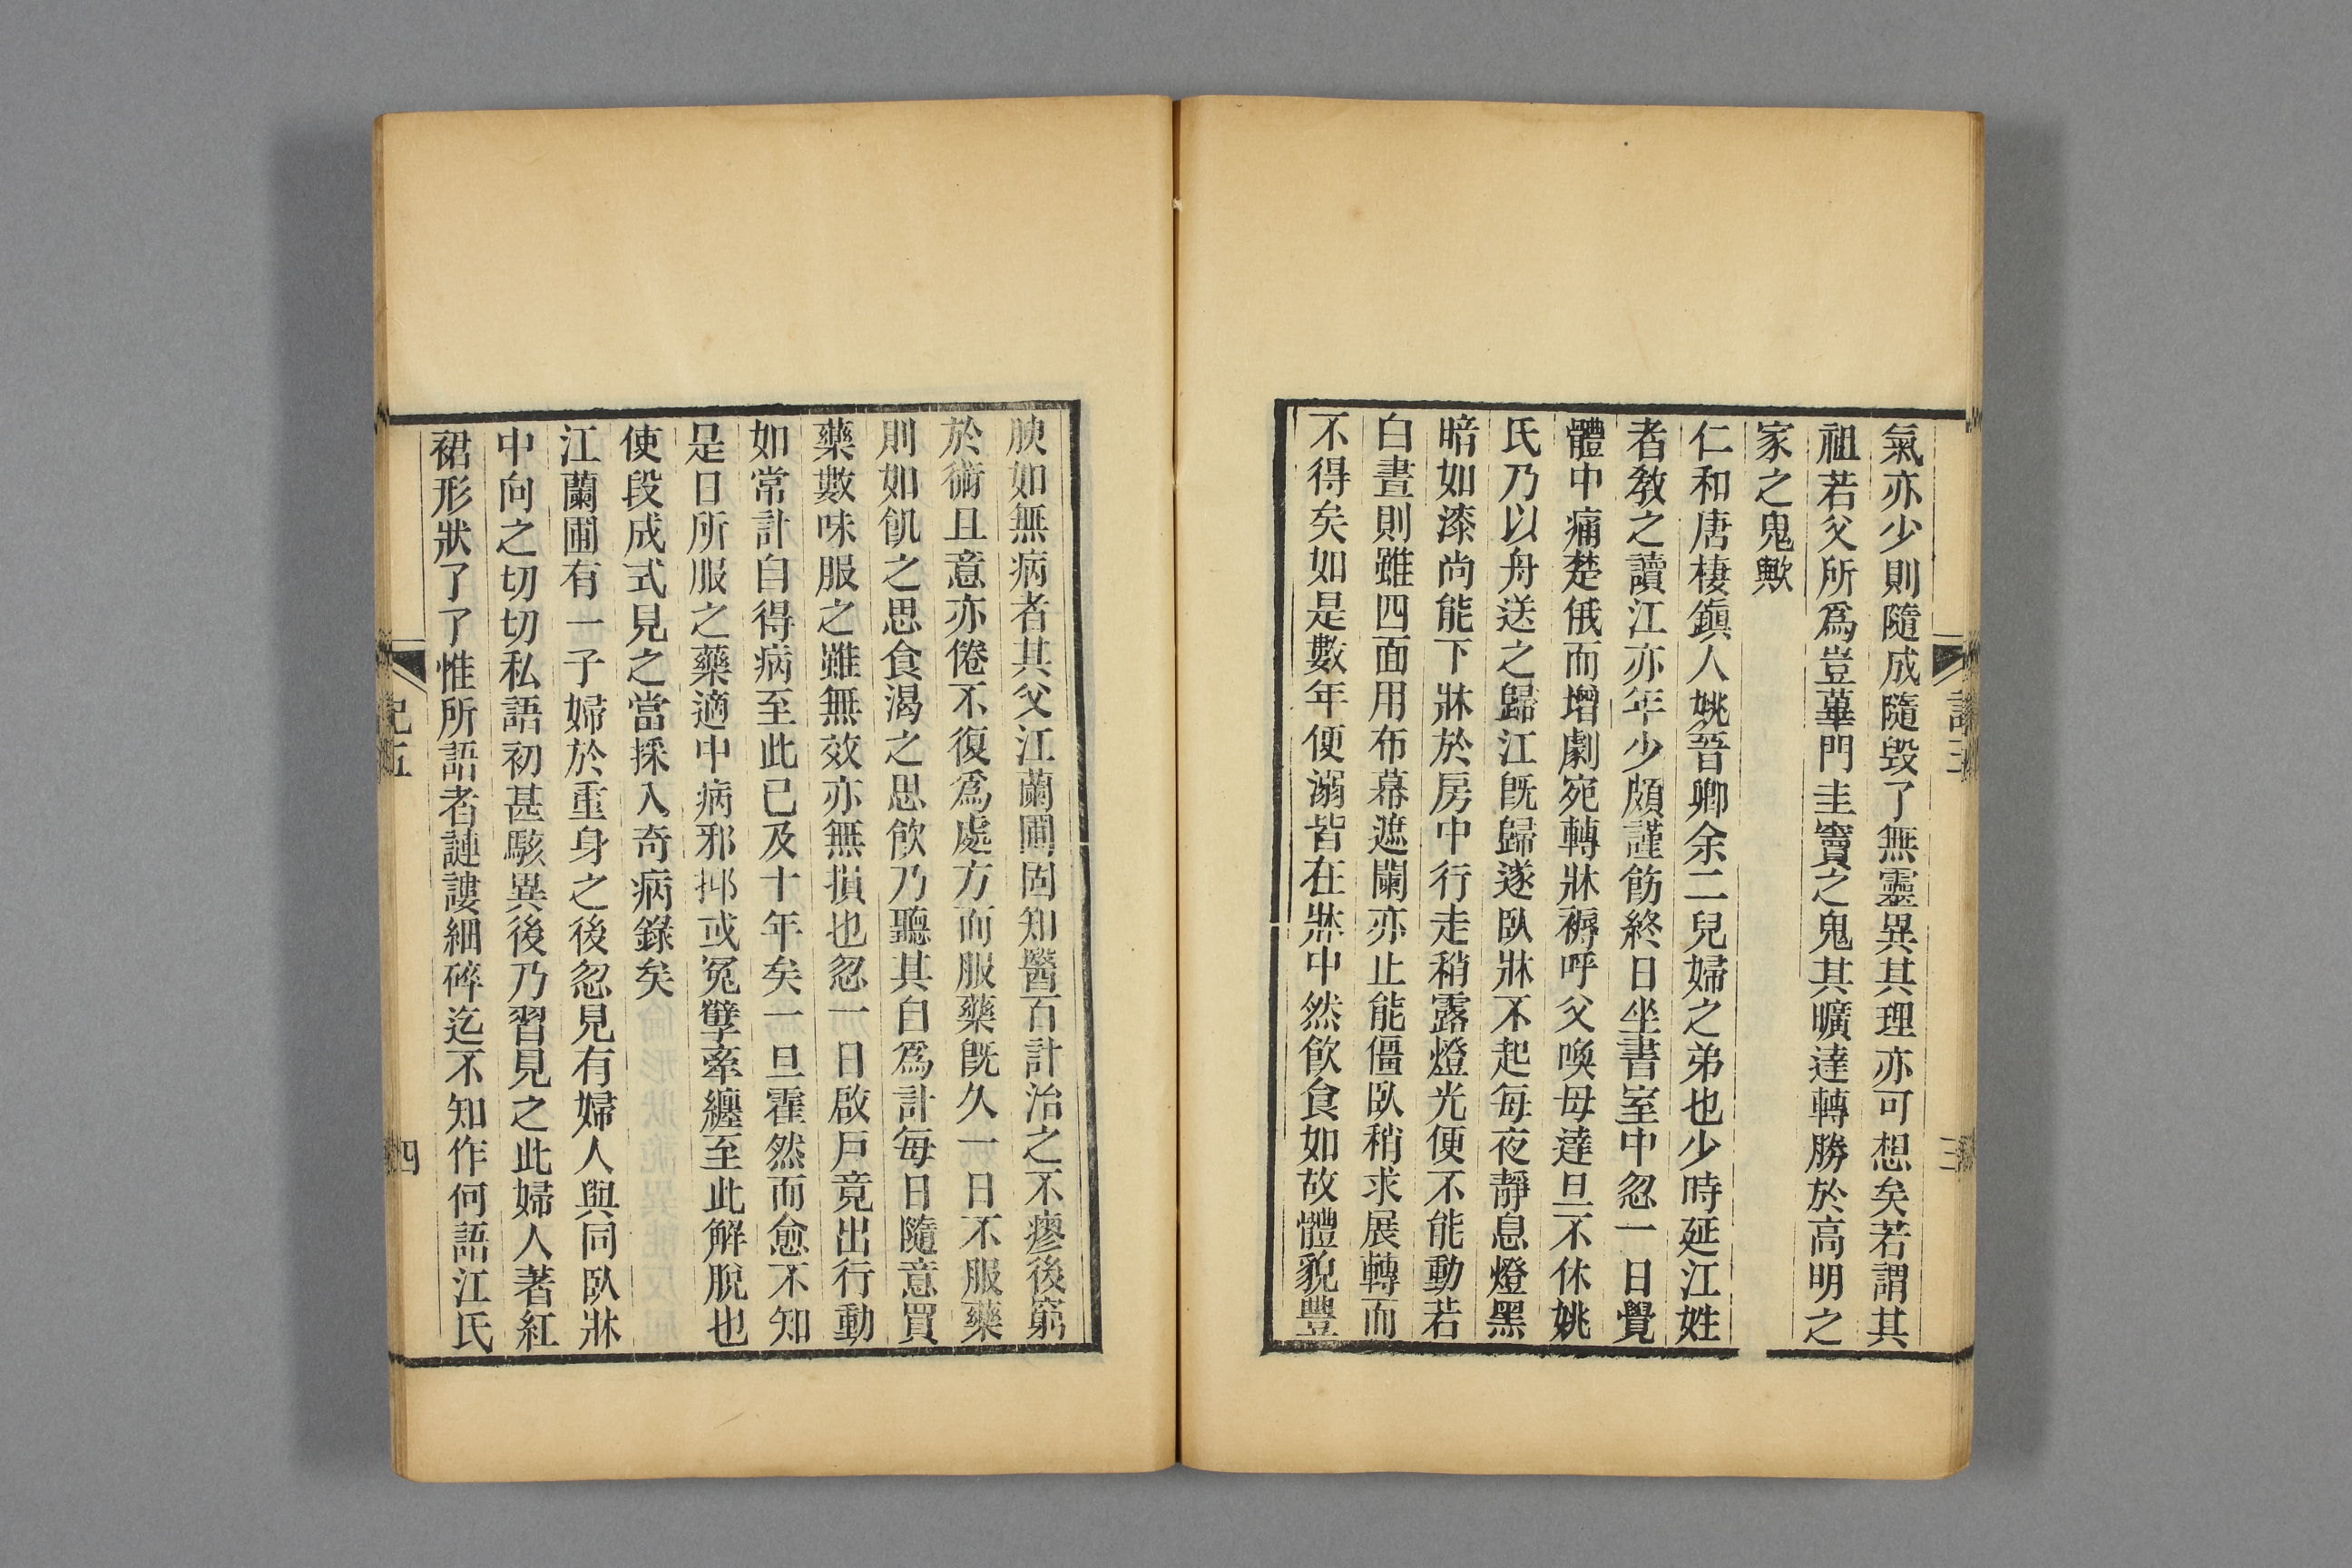 氣亦少則隨成隨毀了無靈異其理亦可想矣若謂其
祖若父所爲豈蓽門圭竇之鬼其曠達轉勝於高明之
家之鬼歟
仁和唐棲鎭人姚晉卿余二兒婦之弟也少時延江姓
者敎之讀江亦年少頗謹飭終日坐書室中忽一日覺
體中痛楚俄而增劇宛轉牀褥呼父喚母達旦不休姚
氏乃以舟送之歸江旣歸遂臥牀不起每夜靜息燈黑
暗如漆尚能下牀於房中行走稍露燈光便不能動若
白晝則雖四面用布幕遮闌亦止能僵臥稍求展轉而
不得矣如是數年便溺皆在牀中然飮食如故體貌豐
腴如無病者其父江蘭圃固知醫百計治之不瘳後窮
於術且意亦倦不復爲處方而服藥旣久一日不服藥
則如飢之思食渴之思飮乃聽其自爲計每日隨意買
藥數味服之雖無效亦無損也忽一日啟戸竟出行動
如常計自得病至此已及十年矣一旦霍然而愈不知
是日所服之藥適中病邪抑或冤孽牽纏至此解脫也
使段成式見之當採入奇病錄矣
江蘭圃有一子婦於重身之後忽見有婦人與同臥牀
中向之切切私語初甚駭異後乃習見之此婦人著紅
裙形狀了了惟所語者謰謱細碎迄不知作何語江氏
記五
四